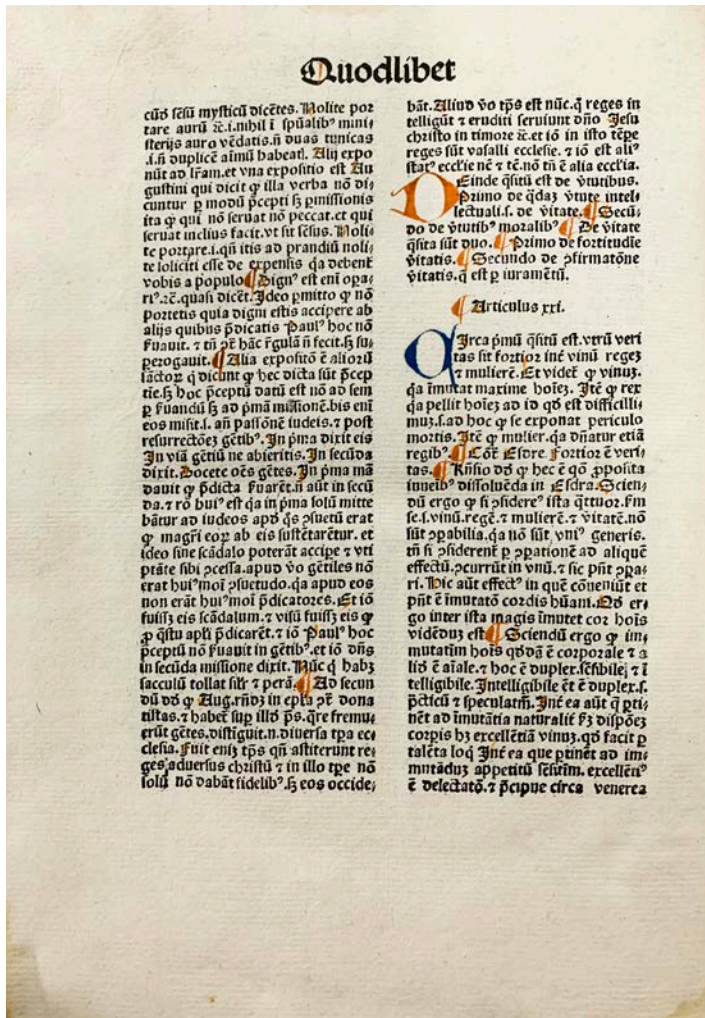 Quodlibet
cūdū sēsū mysticū dicētes. Nolite por
tare aurū ⁊c̄.i.nihil ī spūalib⁹ mini⸗
sterijs auro vēdatis.n̄ duas tunicas
.i.n̄ duplicē aīmū habeatl. Alij expo
nūt ad lr̄am.et vna expositio est Au
gustini qui dicit ꝙ illa verba nō di⸗
cuntur ꝑ modū p̄cepti sꝫ ꝑmissionis
ita ꝙ qui nō seruat nō peccat.et qui
seruat melius facit.vt sit sēsus. Noli⸗
te portare.i.qn̄ itis ad prandiū noli⸗
te soliciti esse de expensis q̄a debent
vobis a populo ¶ Dign⁹ est enī oꝑa⸗
ri⁹.⁊c̄.quasi dicēt. Ideo ꝑmitto ꝙ nō
portetis quia digni estis accipere ab
alijs quibus p̄dicatis Paul⁹ hoc nō
ẜuauit.⁊ tn̄ ↄ̄ hāc r̄gulā n̄ fecit.sꝫ su⸗
ꝑerogauit. ¶ Alia expositō ē aliorū
sāctoꝝ q̄ dicunt ꝙ hec dicta sūt p̄cep
tie.sꝫ hoc p̄ceptū datū est nō ad sem
ꝑ ẜuandū sꝫ ad p̄mā missionē.bis enī
eos misit.s. an̄ passōnē iudeis.⁊ post
resurrectōeꝫ gētib⁹. In p̄ma dixit eis
In viā gētiū ne abieritis. In secūda
dixit. Docete oēs gētes. In p̄ma mā
dauit ꝙ p̄dicta ẜuarēt.n̄ aūt in secū
da.⁊ rō hui⁹ est q̄a in p̄ma solū mitte
bātur ad iudeos apd̄ q̄s ↄsuetū erat
ꝙ magr̄i eoꝝ ab eis sustētarētur. et
ideo sine scādalo poterāt accipe ⁊ vti
ptāte sibi ↄcessa. apud v̄o gētiles nō
erat hui⁹moi ↄsuetudo.q̄a apud eos
non erāt hui⁹moī p̄dicatores. Et iō
fuisſꝫ eis scādalum.⁊ visū fuisſꝫ eis ꝙ
ꝓ q̄stu apl̄i p̄dicarēt.⁊ iō Paul⁹ hoc
p̄ceptū nō ẜuauit in gētib⁹.et iō dn̄s
in secūda missione dixit. Nūc q̄ habꝫ
sacculū tollat sil̄r ⁊ perā. ¶ Ad secun
dū dd̄ ꝙ Aug.rn̄dꝫ in epl̄a ↄt̄ dona
tistas.⁊ habeť suꝑ illd̄ ps̄.q̄re fremu⸗
erūt gētes.distiguit.n.diuersa tꝑa ec⸗
clesia. Fuit eniꝫ tp̄s qn̄ astiterunt re⸗
ges aduersus christū ⁊ in illo tꝑe nō
solū nō dabāt fidelib⁹.sꝫ eos occide⸗
bāt. Aliud v̄o tp̄s est nūc.q̄ reges in
telligūt ⁊ eruditi seruiunt dn̄o Jesu
christo in timore ⁊c̄.et iō in isto tēꝑe
reges sūt vasalli ecclesie. ⁊ iō est ali⁹
stat⁹ eccl̄ie nc̄ ⁊ tē.nō tn̄ ē alia eccl̄ia.
DEinde q̄situ est de v̄tutibus.
Primo de q̄daꝫ v̄tute intel⸗
lectuali.s. de v̄itate. ¶ Secū⸗
do de v̄tutib⁹ moralib⁹ ¶ De v̄itate
q̄sita sūt duo. ¶ Primo de fortitudīe
v̄itatis. ¶ Secundo de ↄfirmatōne
v̄itatis.q̄ est ꝑ iuramētū.
¶ Articulus xxi.
CIrca p̄mū q̄sitū est.vtrū veri
tas sit fortior inť vinū regeꝫ
⁊ mulierē. Et videť ꝙ vinuꝫ.
q̄a īmutat maxime hoīeꝫ. Itē ꝙ rex
q̄a pellit hoīeꝫ ad id qd̄ est difficilli⸗
muꝫ.s.ad hoc ꝙ se exponat periculo
mortis. Itē ꝙ mulier.q̄a dn̄atur etiā
regib⁹. ¶ Cōť Esdre. Fortior ē veri⸗
tas. ¶ Rn̄sio dd̄ ꝙ hec ē qō ꝓposita
iuueīb⁹ dissoluēda in Esdra. Scien⸗
dū ergo ꝙ si ↄsidere⁹ ista q̄ttuor.ẜm
se.s.vinū.regē.⁊ mulierē.⁊ v̄itatē.nō
sūt ↄꝑabilia.q̄a nō sūt vni⁹ generis.
tn̄ si ↄsiderent̄ ꝑ ↄꝑationē ad aliquē
effectū.ↄcurrūt in vnū.⁊ sic pn̄t ↄꝑa⸗
ri. Hic aūt effect⁹ in quē cōueniūt et
pn̄t ē īmutatō cordis hūani. Qd̄ er⸗
go inter ista magis īmutet cor hoīs
vidēduꝫ est ¶ Sciendū ergo ꝙ im⸗
mutatiuū hoīs qd̄dā ē corporale ⁊ a
liđ ē aīale.⁊ hoc ē duplex.sēsibile.⁊ ī
telligibile. Intelligibile ēt ē duplex.s.
p̄cticū ⁊ speculatīū. Inť ea aūt q̄ ꝑti⸗
nēt ad īmutātia naturalit̄ ẜꝫ dispōeꝫ
corpis hꝫ excellētiā vinuꝫ.qd̄ facit ꝑ
talēta loq̄ Inť ea que ꝑtinēt ad im⸗
mutāduꝫ appetitū sēsitīm. excellēti⁹
ē delectatō.⁊ p̄cipue circa venerea